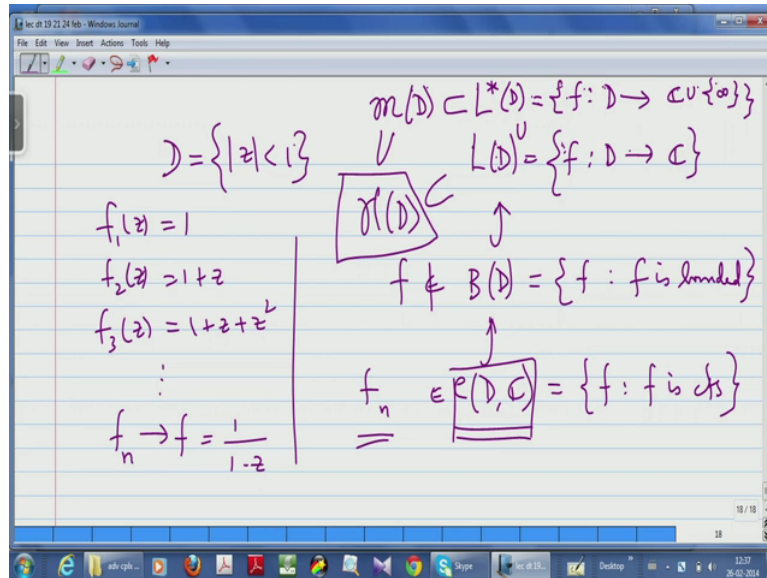 lec dt 19 21 24 feb - Windows Journal
File Edit View Insert Actions Tools Help
m(D) ⊂ L*(D) = {f : D → ℂ ∪ {∞}}
D = {|z| < 1}
∪
∪
L(D) = {f : D → ℂ}
H(D) ⊂
f₁(z) = 1
↑
f₂(z) = 1+z
f ∉ B(D) = {f : f is bounded}
f₃(z) = 1+z+z²
↑
⋮
fₙ ∈ C(D, ℂ) = {f : f is cts}
fₙ → f = 1/(1-z)
18 / 18
18
adv cplx ...
Skype
lec dt 19...
Desktop
12:37
26-02-2014